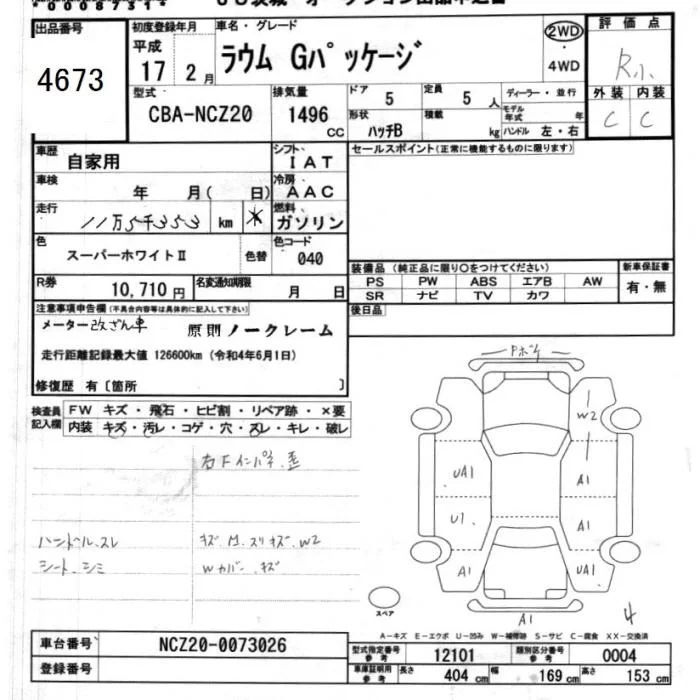 00087311
出品番号
4673
初度登録年月
平成
17 2月
車名・グレード
ラウム Gパッケージ
2WD
・
4WD
評価点
R小
外装 内装
C C
型式
CBA-NCZ20
排気量
1496
CC
ドア 5
定員 5 人
形状 ハッチB
積載 kg
ディーラー・並行
モデル年式 年
ハンドル 左・右
車歴
自家用
シフト
IAT
セールスポイント(正常に機能するものに限ります)
車検
年 月( 日)
冷房
AAC
走行
11万5千353 km *
燃料
ガソリン
色
スーパーホワイトII
色替
色コード
040
R券
10,710 円
名変通知期限
月 日
装備品 (純正品に限り○をつけてください)
PS PW ABS エアB AW
SR ナビ TV カワ
新車保証書
有・無
後日品
注意事項申告欄(不具合内容等は具体的に記入して下さい)
メーター改ざん車 原則ノークレーム
走行距離記録最大値 126600km (令和4年6月1日)
修復歴 有〔箇所 〕
検査員記入欄
FW キズ・飛石・ヒビ割・リペア跡・×要
内装 キズ・汚レ・コゲ・穴・スレ・キレ・破レ
右Fインパネ、歪
ハンドル、スレ
シート、シミ
キズ、凹、スリキズ、W2
Wカバー、キズ
Pボケ
W2
UA1
A1
U1
A1
A1
UA1
A1
スペア
4
A-キズ E-エクボ U-凹み W-補修跡 S-サビ C-腐食 XX-交換済
車台番号
NCZ20-0073026
登録番号
型式指定番号
参考
12101
類別区分番号
参考
0004
車庫証明用
参考
長さ 404 cm 幅 169 cm 高さ 153 cm